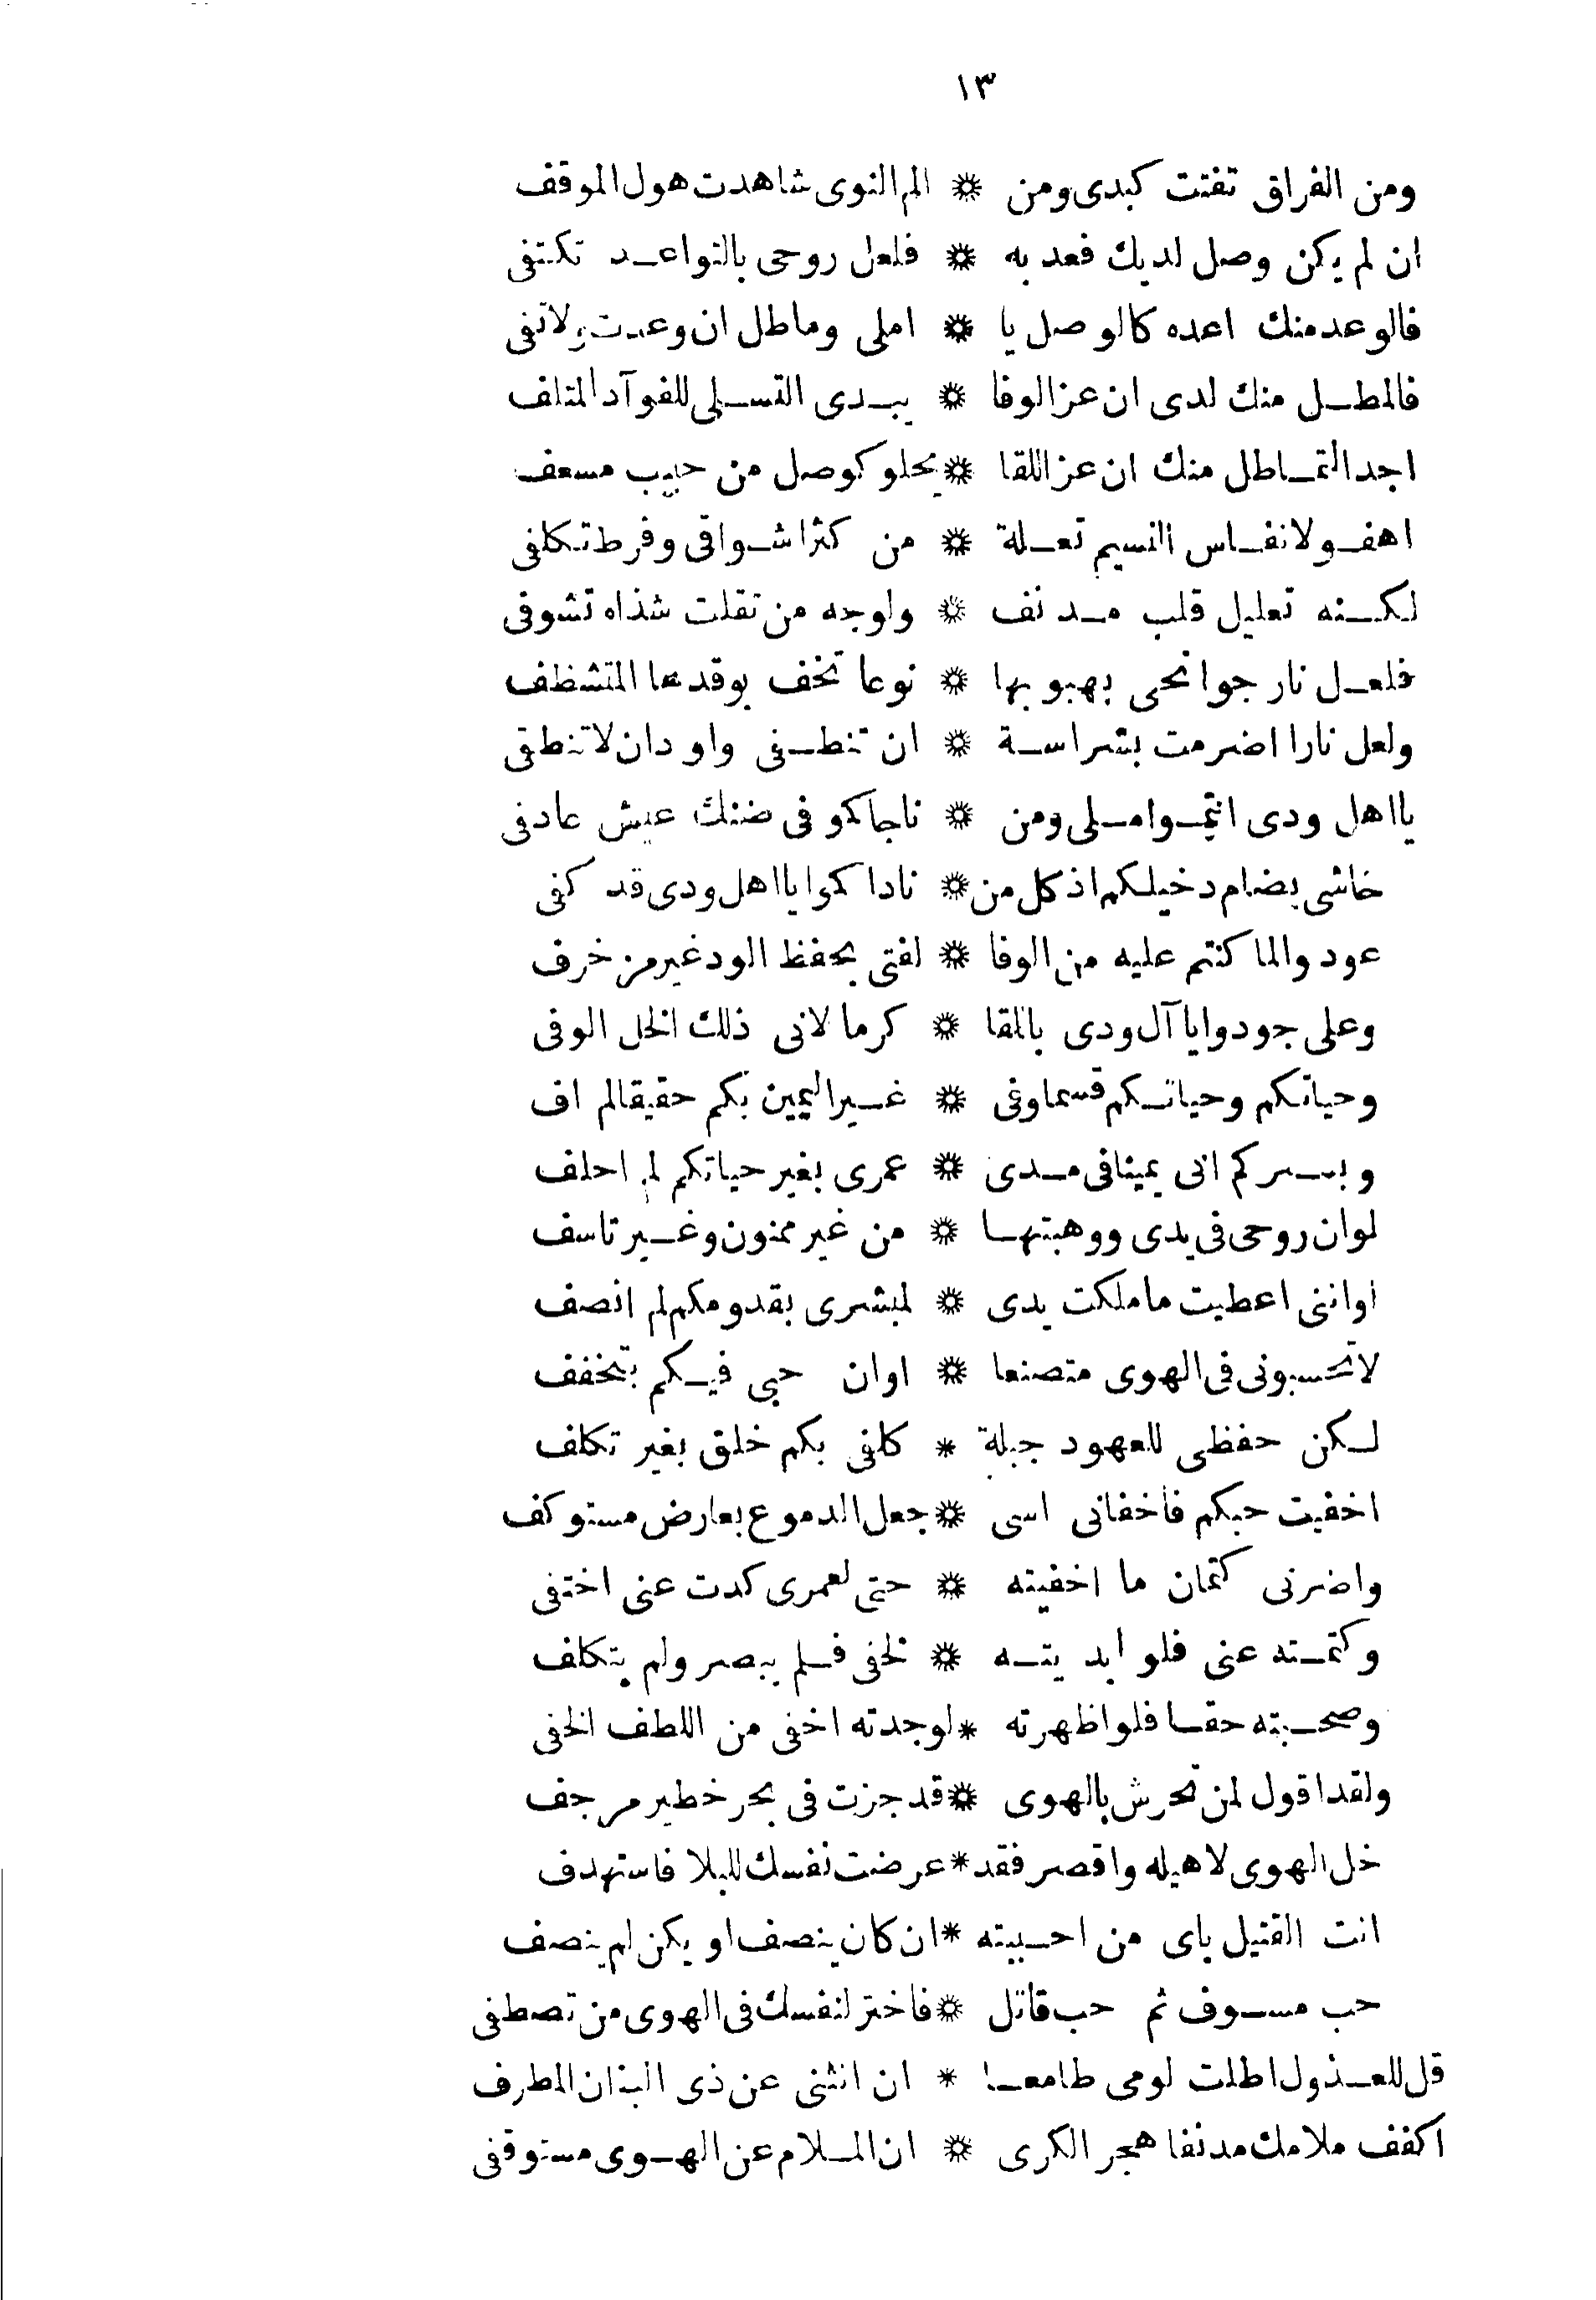 ١٣
ومن الفراق تفتت كبدى ومن * الم النوى شاهدت هول الموقف
ان لم يكن وصل لديك فعد به * فلعل روحى بالتواعد تكتفى
فالوعد منك اعده كالوصل يا * املى وماطل ان وعدت ولاتفى
فالمطل منك لدى ان عز الوفا * يبدى التسلى للفوآد المتلف
اجد التماطل منك ان عز اللقا * يحلو كوصل من حبيب مسعف
اهفو لانفاس النسيم تعلة * من كثر اشواقى وفرط تكلفى
لكنه تعليل قلب مدنف * ولوجه من نقلت شذاه تشوفى
فلعل نار جوانحى بهبوبها * نوعا تخف بوقدها المتشظف
ولعل نارا اضرمت بشراسة * ان تنطفى واود ان لاتنطقى
يا اهل ودى انتموا ملى ومن * ناجاكمو فى ضنك عيش عادفى
خاشى يضام دخيلكم اذ كل من * ناداكموا يا اهل ودى قد كفى
عودوالما كنتم عليه من الوفا * لفتى بحفظ الود غير مزخرف
وعلى جودوا يا آل ودى باللقا * كرما لانى ذلك الخل الوفى
وحياتكم وحياتكم قسما وفى * غير اليمين بكم حقيقا لم اف
وبسركم انى يمينا فى مدى * عمرى بغير حياتكم لم احلف
لوان روحى فى يدى ووهبتها * من غير ممنون وغير تاسف
اواننى اعطيت ما ملكت يدى * لمبشرى بقدومكم لم انصف
لاتحسبونى فى الهوى متصنعا * اوان حبى فيكم بتخفف
لكن حفظى للعهود جبلة * كلفى بكم خلق بغير تكلف
اخفيت حبكم فأخفانى اسى * جعل الدموع بعارض مستوكف
واضرنى كتمان ما اخفيته * حتى لعمرى كدت عنى اختفى
وكتمته عنى فلو ابديته * لخفى فلم يبصر ولم يتكلف
وصحبته حقا فلو اظهرته * لوجدته اخفى من اللطف الخفى
ولقد اقول لمن تحرش بالهوى * قد جزت فى بحر خطير مرجف
خل الهوى لاهيله واقصر فقد * عرضت نفسك للبلا فاستهدف
انت القتيل باى من احببته * ان كان ينصف او يكن لم ينصف
حب مسوف ثم حب قاتل * فاختر لنفسك فى الهوى من تصطفى
قل للعذول اطلت لومى طامعا * ان انثنى عن ذى البنان المطرف
اكفف ملامك مدنفا هجر الكرى * ان الملام عن الهوى مستوقفى